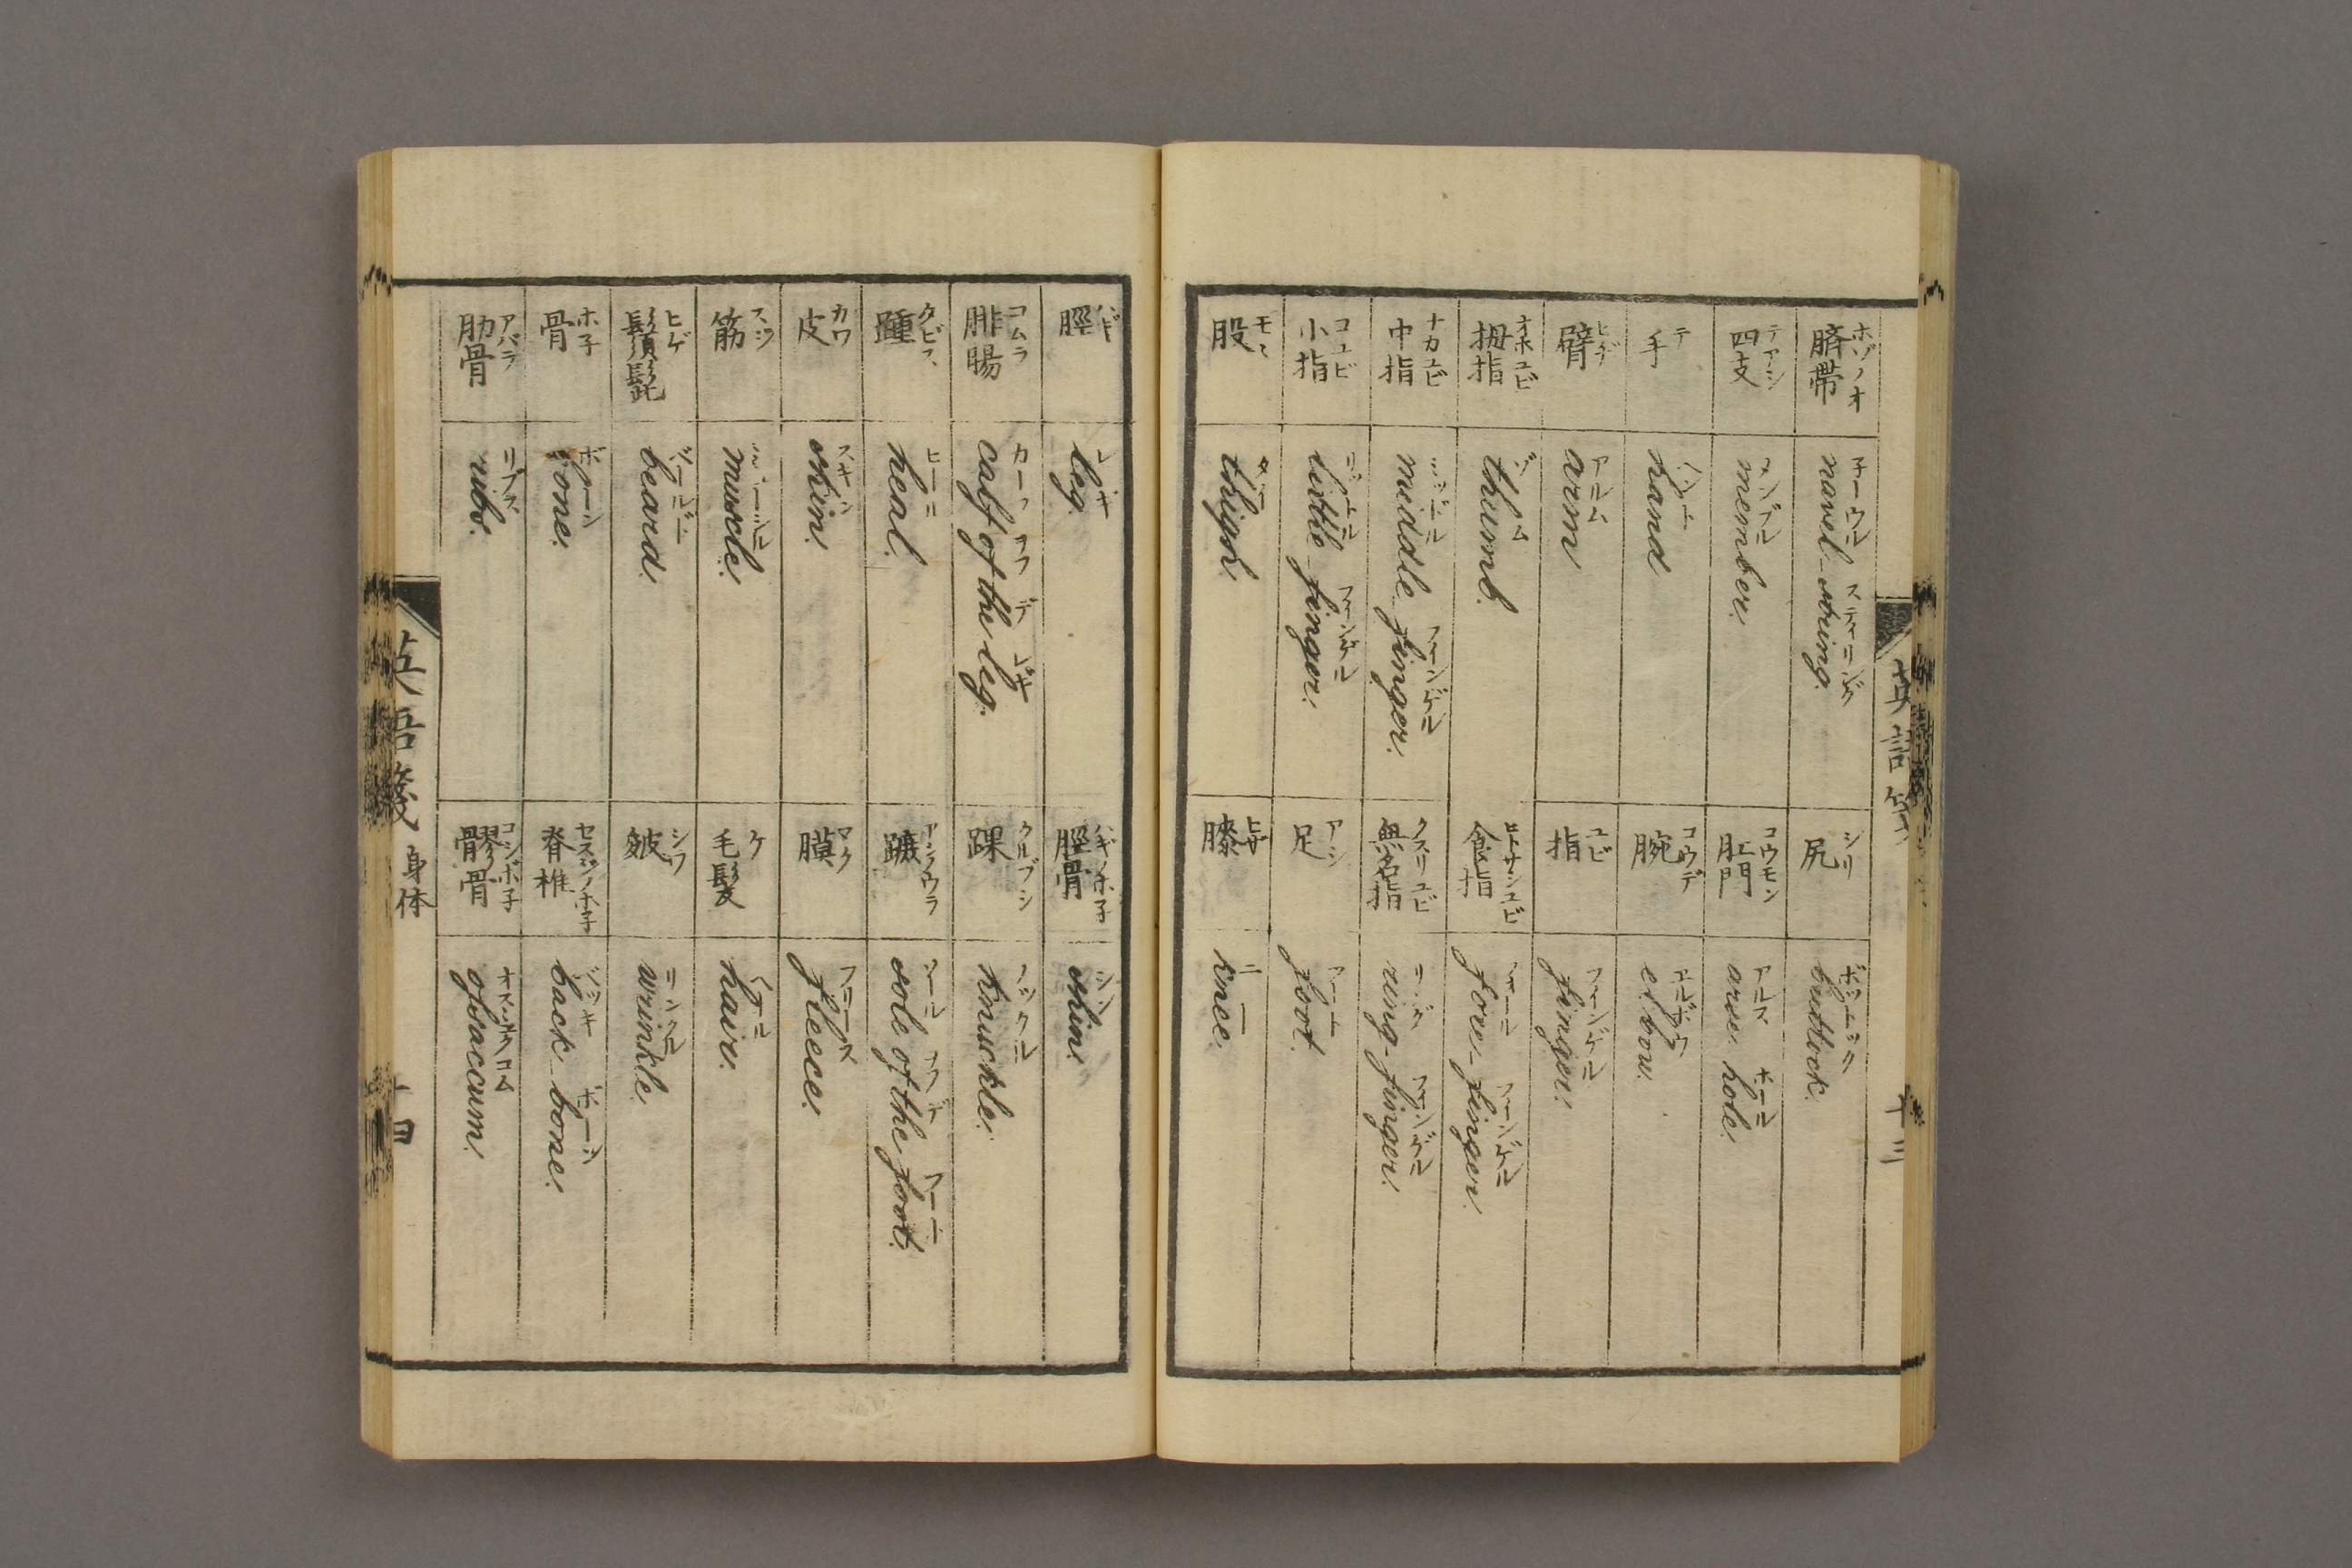 英語箋
十三
臍帯 ホゾノオ
navel-string. 子ーウル スティリング
尻 シリ
buttock
四支 テアシ
member. メンブル
肛門 コウモン
arse hole. アルス ホール
手 テ
hand ヘンド
腕 コウデ
elbow. エルボウ
臂 ヒヂ
arm アルム
指 ユビ
finger. フィンゲル
拇指 オホユビ
thumb. ゾム
食指 ヒトサシユビ
fore-finger. フォール フィンゲル
中指 ナカユビ
middle finger. ミッドル フィンゲル
無名指 クスリユビ
ring-finger. リング フィンゲル
小指 コユビ
little finger. リットル フィンゲル
足 アシ
foot. フート
股 モヽ
thigh.
膝 ヒザ
knee. ニー
脛 ハギ
leg. レギ
脛骨 ハギノホ子
shin. シン
腓腸 コムラ
calf of the leg. カーフ ヲフ デ レギ
踝 クルブシ
knuckle. ノックル
踵 クビス
heal. ヒール
蹠 アシノウラ
sole of the foot. ソール ヲフ デ フート
皮 カワ
skin. スキン
膜 マク
fleece. フリース
筋 スジ
muscle.
毛髪 ケ
hair. ヘール
鬚髭 ヒゲ
beard.
皴 シワ
wrinkle. リンクル
骨 ホ子
bone. ボーン
脊椎 セスジノホ子
back-bone. バッキ ボーン
肋骨 アバラ
ribs. リブス
髎骨 コシボ子
ofsaccum.
英語箋 身体
十四